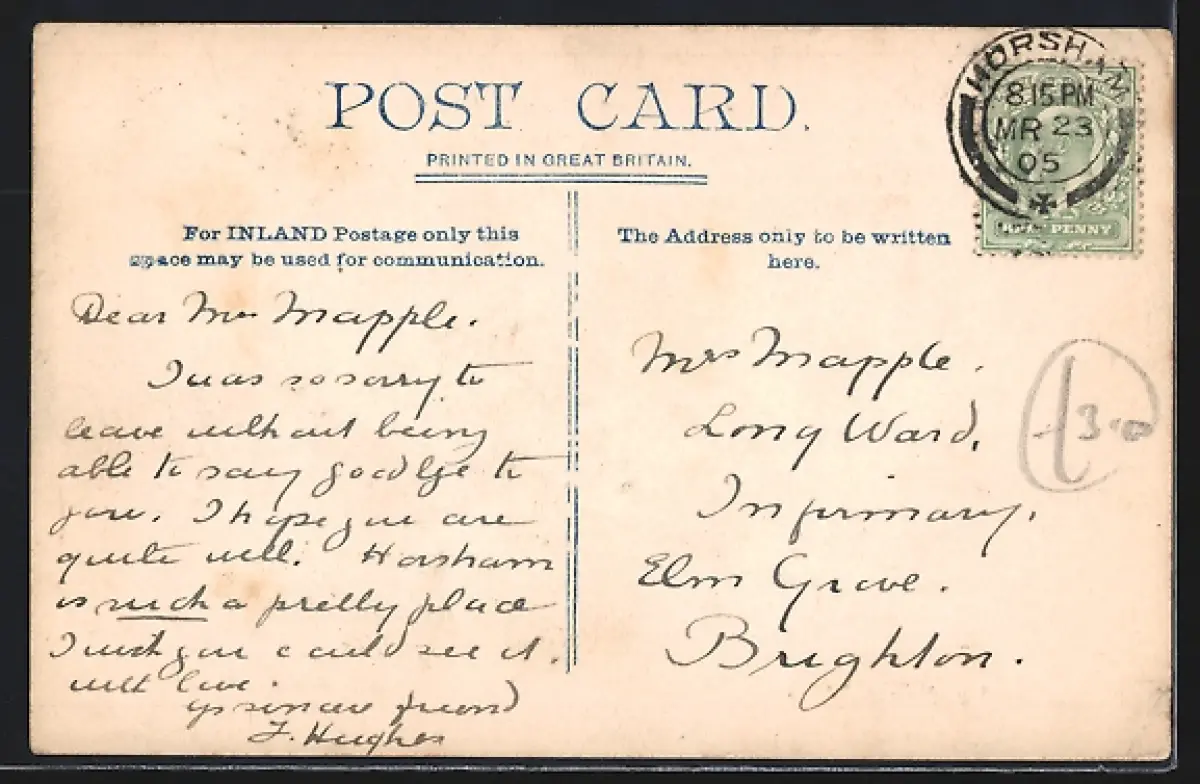 POST CARD.
PRINTED IN GREAT BRITAIN.
For INLAND Postage only this
space may be used for communication.
The Address only to be written
here.
HORSHAM
8.15 PM
MR 23
05
HALF PENNY
Dear Mrs Mapple.
I was so sorry to
leave without being
able to say goodbye to
you. I hope you are
quite well. Horsham
is such a pretty place
I wish you could see it.
with love.
yr sincere friend
F. Hughes
Mrs Mapple.
Long Ward,
Infirmary,
Elm Grove.
Brighton.